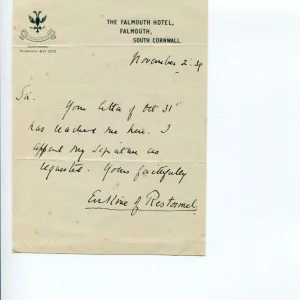 THE FALMOUTH HOTEL,
FALMOUTH,
SOUTH CORNWALL.
November 2. 39
Sir.
Your letter of Oct 31st
has reached me here. I
append my signature as
requested. Yours faithfully
Erskine of Restormel.